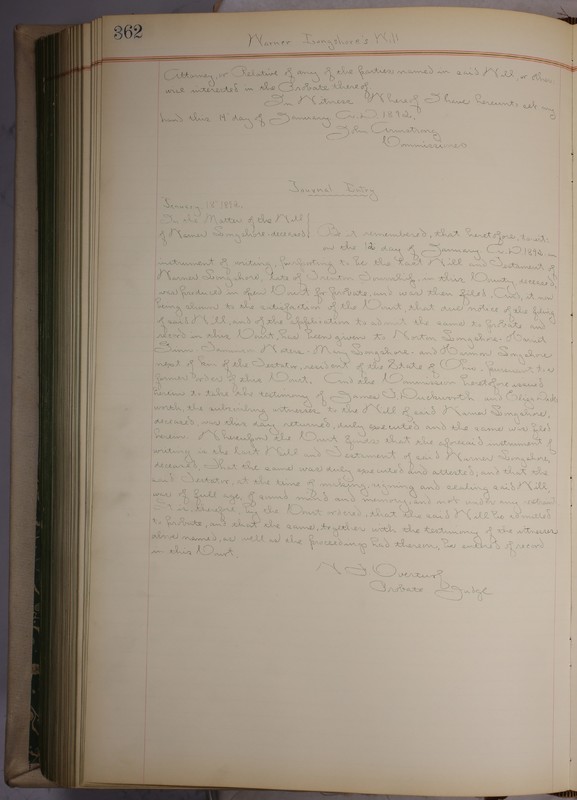 362
Warner Longshore's Will
Attorney, or Relative of any of the parties named in said Will, or otherwise
interested in the Probate thereof.
In Witness Whereof I have hereunto set my
hand this 14 day of January A.D. 1892.
John Armstrong
Commissioner
Journal Entry
January 18 189
In the Matter of the Will
of Warner Longshore deceased Be it remembered, that heretofore, to wit:
on the 12 day of January A.D. 1892 an
instrument of writing, purporting to be the Last Will and Testament of
Warner Longshore, late of Trenton Township, in this County, deceased,
was produced in open Court for probate, and was then filed. And, it now
being shown to the satisfaction of the Court, that due notice of the filing
of said Will, and of the application to admit the same to probate and
record in this Court, has been given to Morton Longshore,
Mary Longshore and Longshore
next of kin of the Testator, resident of the State of Ohio, pursuant to a
former order of this Court. And the Commission heretofore issued
herein to take the testimony of James J. Duckworth and
worth, the subscribing witnesses to the Will of said Warner Longshore,
deceased, was this day returned, duly executed and the same is filed
herein. Wherefore the Court finds that the aforesaid instrument of
writing is the last Will and Testament of said Warner Longshore,
deceased, that the same was duly executed and attested, and that the
said Testator, at the time of making, signing and sealing said Will,
was of full age, of sound mind and memory, and not under any restraint
It is therefore, by the Court ordered, that the said Will be admitted
to probate, and that the same, together with the testimony of the witnesses
above named, as well as the proceedings had thereon, be entered of record
in this Court.
Overturf
Probate Judge